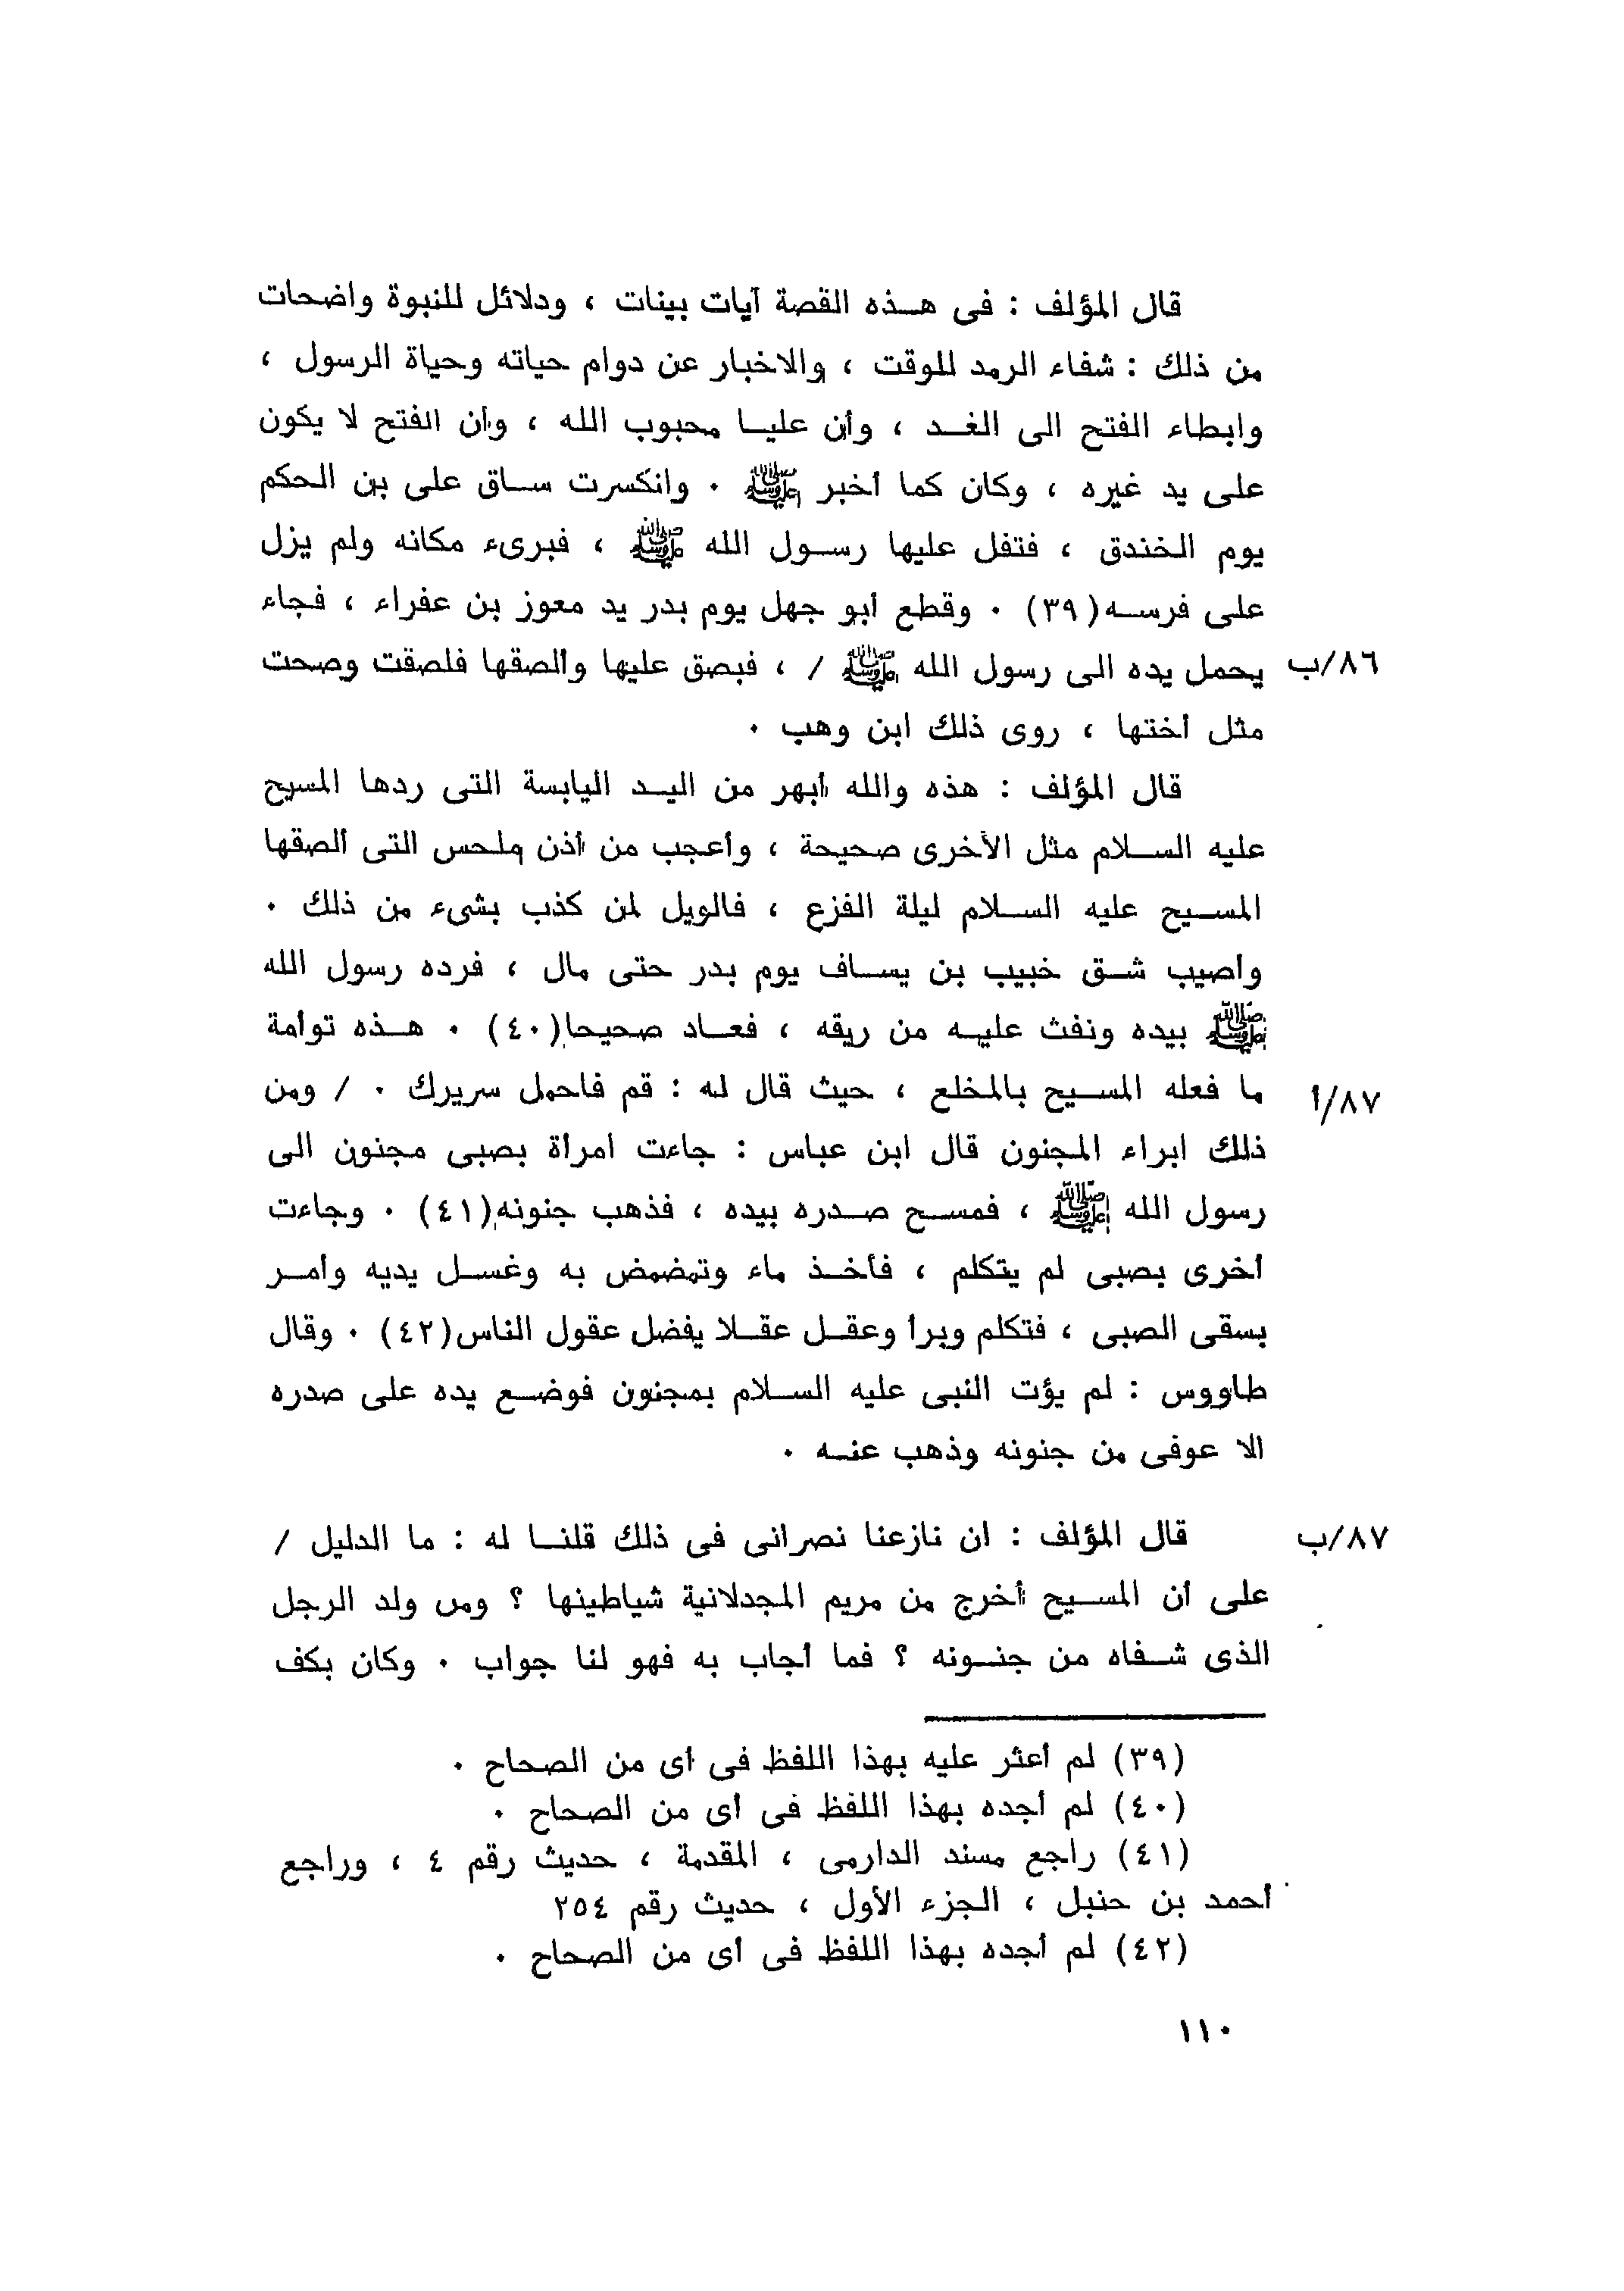 قال المؤلف : فى هـذه القصة آيات بينات ، ودلائل للنبوة واضحات
من ذلك : شفاء الرمد للوقت ، والاخبار عن دوام حياته وحياة الرسول ،
وابطاء الفتح الى الغـد ، وأن عليـا محبوب الله ، وأن الفتح لا يكون
على يد غيره ، وكان كما أخبر ﷺ . وانكسرت سـاق على بن الحكم
يوم الخندق ، فتفل عليها رسـول الله ﷺ ، فبرىء مكانه ولم يزل
على فرسـه(٣٩) . وقطع أبو جهل يوم بدر يد معوز بن عفراء ، فجاء
٨٦/ب يحمل يده الى رسول الله ﷺ / ، فبصق عليها وألصقها فلصقت وصحت
مثل أختها ، روى ذلك ابن وهب .
قال المؤلف : هذه والله أبهر من اليـد اليابسة التى ردها المسيح
عليه السـلام مثل الأخرى صحيحة ، وأعجب من أذن ملحس التى ألصقها
المسـيح عليه السـلام ليلة الفزع ، فالويل لمن كذب بشىء من ذلك .
وأصيب شـق خبيب بن يسـاف يوم بدر حتى مال ، فرده رسول الله
ﷺ بيده ونفث عليـه من ريقه ، فعـاد صحيحا(٤٠) . هـذه توأمة
٨٧/أ ما فعله المسـيح بالمخلع ، حيث قال له : قم فاحمل سريرك . / ومن
ذلك ابراء المجنون قال ابن عباس : جاءت امرأة بصبى مجنون الى
رسول الله ﷺ ، فمسـح صـدره بيده ، فذهب جنونه(٤١) . وجاءت
أخرى بصبى لم يتكلم ، فأخـذ ماء وتمضمض به وغسـل يديه وأمـر
بسقى الصبى ، فتكلم وبرأ وعقـل عقـلا يفضل عقول الناس(٤٢) . وقال
طاووس : لم يؤت النبى عليه السـلام بمجنون فوضـع يده على صدره
الا عوفى من جنونه وذهب عنـه .
٨٧/ب قال المؤلف : ان نازعنا نصرانى فى ذلك قلنـا له : ما الدليل /
على أن المسـيح أخرج من مريم المجدلانية شياطينها ؟ ومن ولد الرجل
الذى شـفاه من جنـونه ؟ فما أجاب به فهو لنا جواب . وكان بكف
(٣٩) لم أعثر عليه بهذا اللفظ فى أى من الصحاح .
(٤٠) لم أجده بهذا اللفظ فى أى من الصحاح .
(٤١) راجع مسند الدارمى ، المقدمة ، حديث رقم ٤ ، وراجع
أحمد بن حنبل ، الجزء الأول ، حديث رقم ٢٥٤
(٤٢) لم أجده بهذا اللفظ فى أى من الصحاح .
١١٠